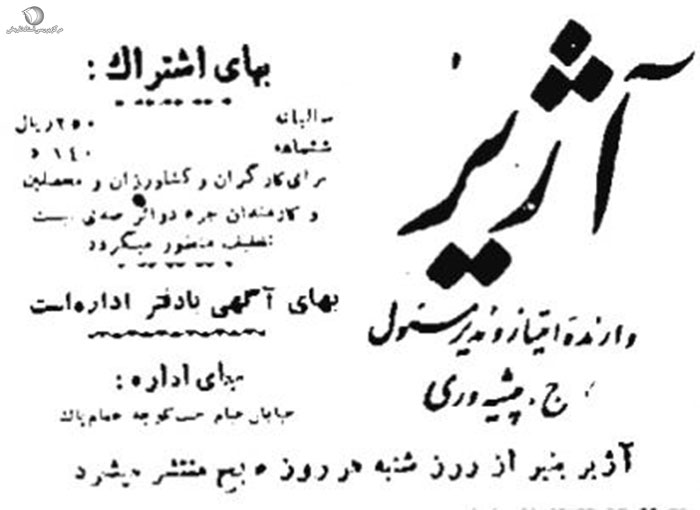 آژیر
دارندهٔ امتیاز و مدیر مسئول
ج. پیشه وری
بهای اشتراك:
سالیانه ۲۵۰ ریال
ششماهه ۱۴۰ »
برای کارگران و کشاورزان و محصلین
و کارمندان جزء دوائر صدی بیست
تخفیف منظور میگردد
بهای آگهی بادفتر اداره‌است
جای اداره:
خیابان خیام جنب كوچه حمام
آژیر بغیر از روز شنبه هر روز صبح منتشر میشود